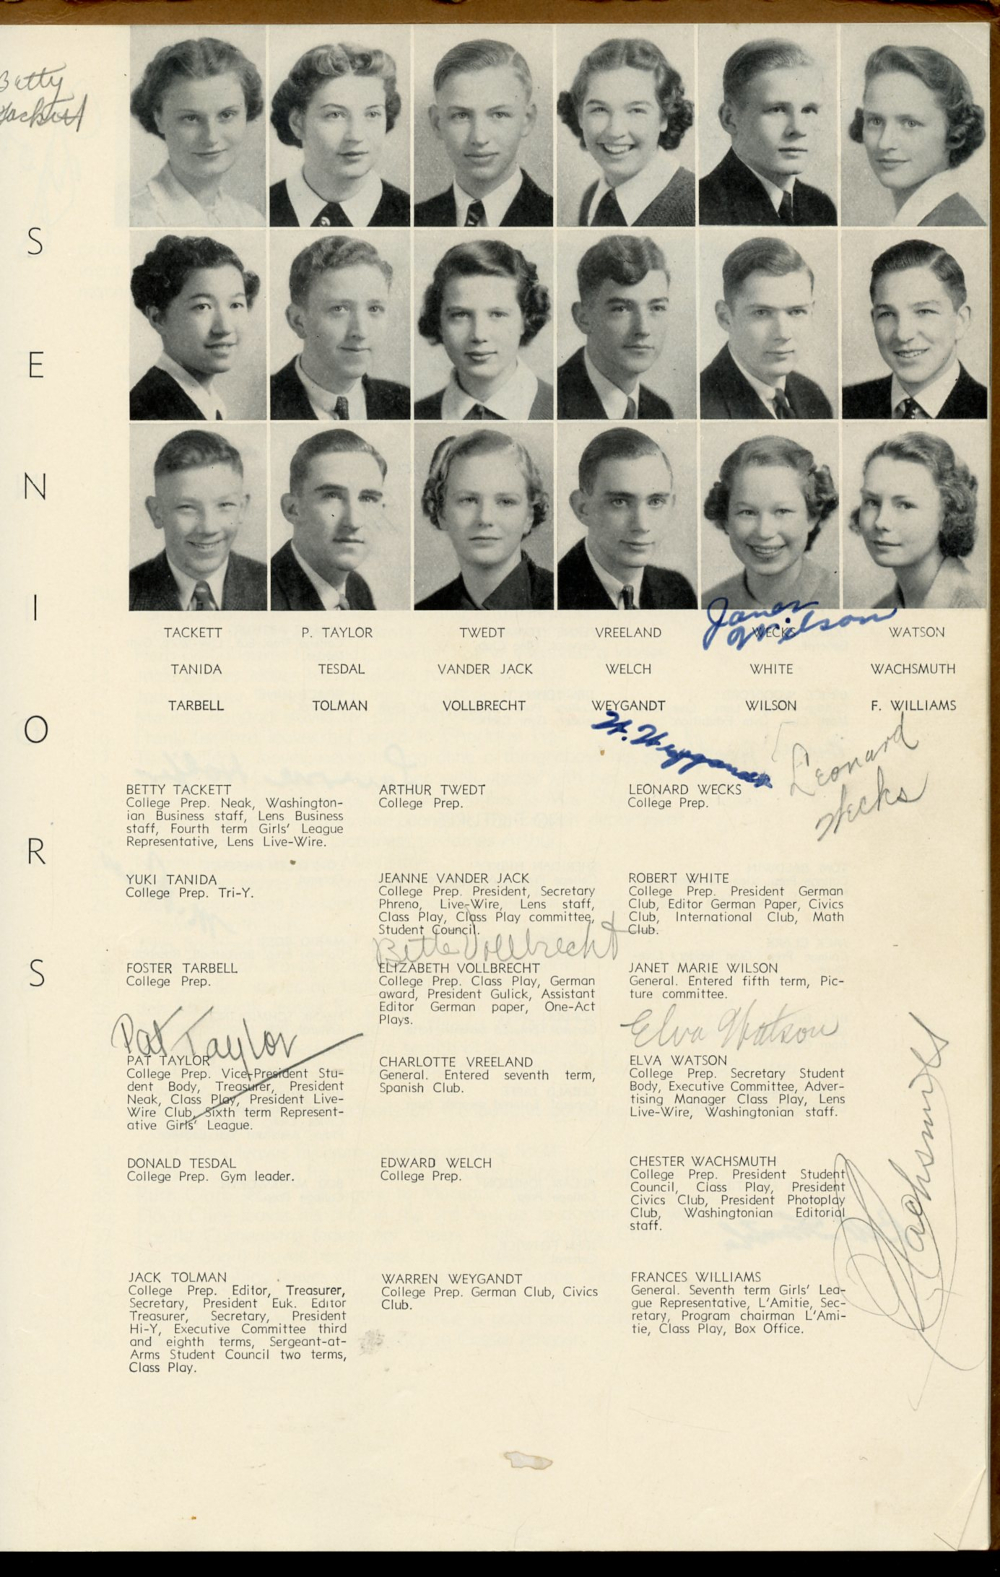 Betty
Tackett
SENIORS
TACKETT P. TAYLOR TWEDT VREELAND WECKS WATSON
Janet
Wilson
TANIDA TESDAL VANDER JACK WELCH WHITE WACHSMUTH
TARBELL TOLMAN VOLLBRECHT WEYGANDT WILSON F. WILLIAMS
W. Weygandt
Leonard
Wecks
BETTY TACKETT
College Prep. Neak, Washington-
ian Business staff, Lens Business
staff, Fourth term Girls' League
Representative, Lens Live-Wire.
YUKI TANIDA
College Prep. Tri-Y.
FOSTER TARBELL
College Prep.
Pat Taylor
PAT TAYLOR
College Prep. Vice-President Stu-
dent Body, Treasurer, President
Neak, Class Play, President Live-
Wire Club, Sixth term Represent-
ative Girls' League.
DONALD TESDAL
College Prep. Gym leader.
JACK TOLMAN
College Prep. Editor, Treasurer,
Secretary, President Euk. Editor
Treasurer, Secretary, President
Hi-Y, Executive Committee third
and eighth terms, Sergeant-at-
Arms Student Council two terms,
Class Play.
ARTHUR TWEDT
College Prep.
JEANNE VANDER JACK
College Prep. President, Secretary
Phreno, Live-Wire, Lens staff,
Class Play, Class Play committee,
Student Council.
Bette Vollbrecht
ELIZABETH VOLLBRECHT
College Prep. Class Play, German
award, President Gulick, Assistant
Editor German paper, One-Act
Plays.
CHARLOTTE VREELAND
General. Entered seventh term,
Spanish Club.
EDWARD WELCH
College Prep.
WARREN WEYGANDT
College Prep. German Club, Civics
Club.
LEONARD WECKS
College Prep.
ROBERT WHITE
College Prep. President German
Club, Editor German Paper, Civics
Club, International Club, Math
Club.
JANET MARIE WILSON
General. Entered fifth term, Pic-
ture committee.
Elva Watson
ELVA WATSON
College Prep. Secretary Student
Body, Executive Committee, Adver-
tising Manager Class Play, Lens
Live-Wire, Washingtonian staff.
CHESTER WACHSMUTH
College Prep. President Student
Council, Class Play, President
Civics Club, President Photoplay
Club, Washingtonian Editorial
staff.
FRANCES WILLIAMS
General. Seventh term Girls' Lea-
gue Representative, L'Amitie, Sec-
retary, Program chairman L'Ami-
tie, Class Play, Box Office.